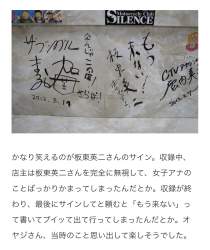 Motorcycle Club
SILENCE
サブングル
さらば!
2012.3.19
もう来ない!
板東英二
かなり笑えるのが板東英二さんのサイン。収録中、
店主は板東英二さんを完全に無視して、女子アナの
ことばっかりかまってしまったんだとか。収録が終
わり、最後にサインしてと頼むと「もう来ない」っ
て書いてプイッて出て行ってしまったんだとか。オ
ヤジさん、当時のこと思い出して楽しそうでした。